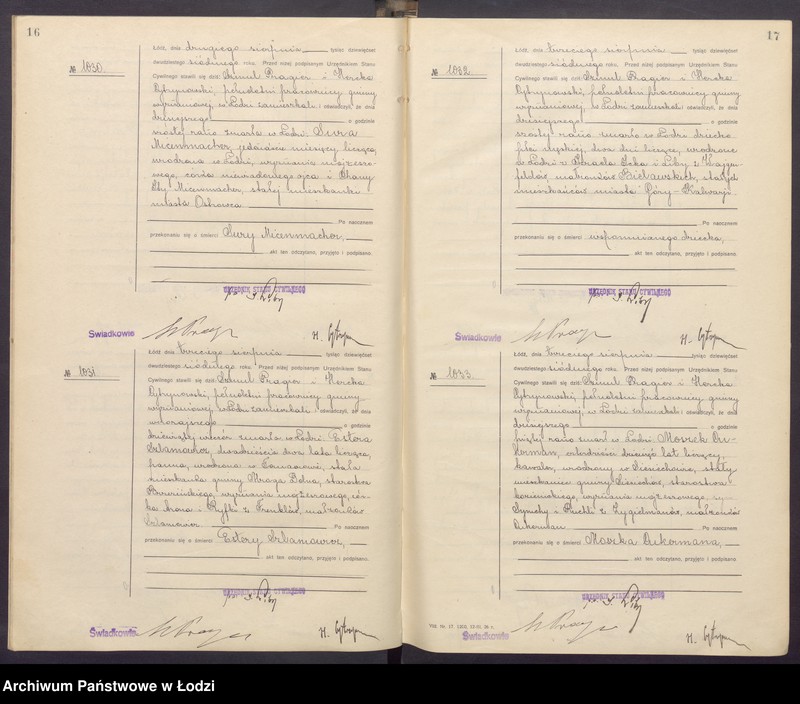 16
№ 1030.
Łódź, dnia drugiego sierpnia tysiąc dziewięćset
dwudziestego siódmego roku. Przed niżej podpisanym Urzędnikiem Stanu
Cywilnego stawili się dziś: Szmul Pragier i Herszka
pełnoletni pracownicy gminy
wyznaniowej, w Łodzi zamieszkali i oświadczyli, że dnia
dzisiejszego o godzinie
szóstej rano zmarła w Łodzi: Sura
Micenmacher, miesięcy licząca,
urodzona w Łodzi, wyznania mojżeszo-
wego, córka niewiadomego ojca i Chany
Ity Micenmacher, stałej mieszkanki
miasta Ostrowca
Po naocznem
przekonaniu się o śmierci Sury Micenmacher,
akt ten odczytano, przyjęto i podpisano.
URZĘDNIK STANU CYWILNEGO
Świadkowie
№ 1031
Łódź, dnia trzeciego sierpnia tysiąc dziewięćset
dwudziestego siódmego roku. Przed niżej podpisanym Urzędnikiem Stanu
Cywilnego stawili się dziś: Szmul Pragier i Herszka
pełnoletni pracownicy gminy
wyznaniowej, w Łodzi zamieszkali i oświadczyli, że dnia
wczorajszego o godzinie
dziewiątej wieczór zmarła w Łodzi: Estera
Szlamowicz, dwadzieścia dwa lata licząca,
panna, urodzona w stała
mieszkanka gminy Dolna, starostwa
Brzezińskiego, wyznania mojżeszowego, cór-
ka i Ryfki z małżonków
Szlamowicz Po naocznem
przekonaniu się o śmierci Estery Szlamowicz,
akt ten odczytano, przyjęto i podpisano.
URZĘDNIK STANU CYWILNEGO
Świadkowie
17
№ 1032
Łódź, dnia trzeciego sierpnia tysiąc dziewięćset
dwudziestego siódmego roku. Przed niżej podpisanym Urzędnikiem Stanu
Cywilnego stawili się dziś: Szmul Pragier i Herszka
pełnoletni pracownicy gminy
wyznaniowej, w Łodzi zamieszkali i oświadczyli, że dnia
dzisiejszego o godzinie
szóstej rano zmarło w Łodzi dziecko
płci męskiej, dwa dni liczące, urodzone
w Łodzi z Icka i Liby z
małżonków Bielawskich, stałych
mieszkańców miasta Góry-Kalwarji
Po naocznem
przekonaniu się o śmierci wspomnianego dziecka,
akt ten odczytano, przyjęto i podpisano.
URZĘDNIK STANU CYWILNEGO
Świadkowie
№ 1033
Łódź, dnia trzeciego sierpnia tysiąc dziewięćset
dwudziestego siódmego roku. Przed niżej podpisanym Urzędnikiem Stanu
Cywilnego stawili się dziś: Szmul Pragier i Herszka
pełnoletni pracownicy gminy
wyznaniowej, w Łodzi zamieszkali i oświadczyli, że dnia
dzisiejszego o godzinie
piątej rano zmarł w Łodzi: Moszek Cu-
kierman, lat liczący,
kawaler, urodzony w stały
mieszkaniec gminy starostwa
wyznania mojżeszowego, syn
Symchy i Ruchli z Zygielmanów, małżonków
Cukierman Po naocznem
przekonaniu się o śmierci Moszka Cukiermana,
akt ten odczytano, przyjęto i podpisano.
URZĘDNIK STANU CYWILNEGO
Świadkowie
Archiwum Państwowe w Łodzi